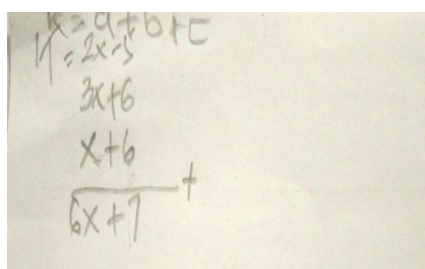 k = a + b + c
= 2x-5
3x+6
x+6
+
6x+7